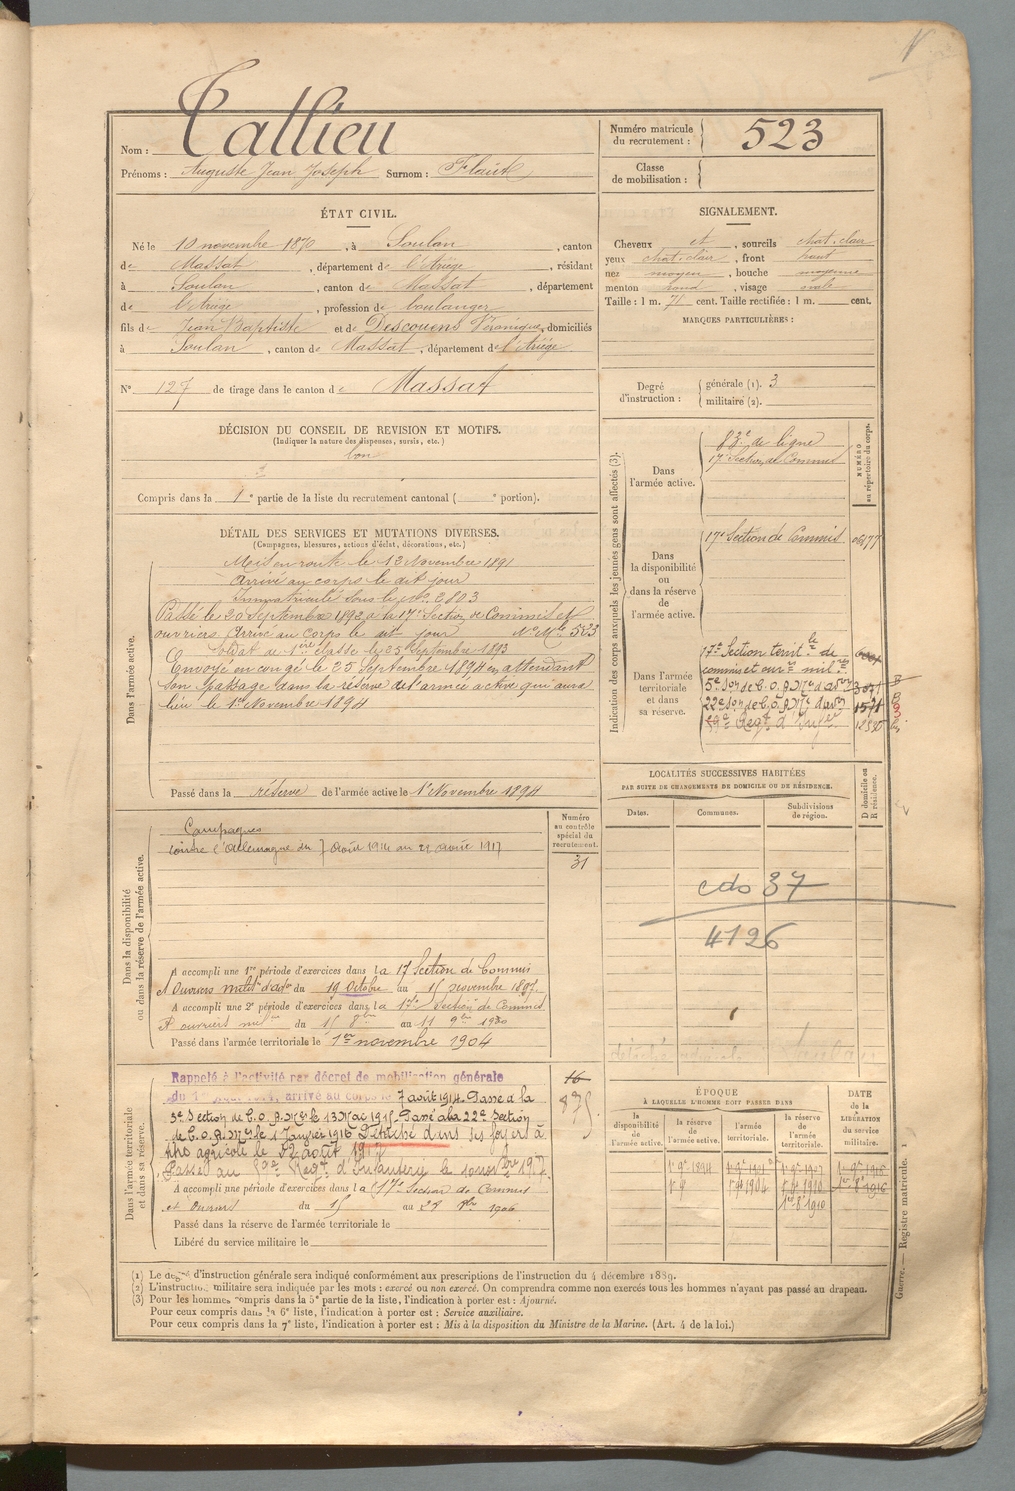 Nom : Tallieu
Prénoms : Auguste Jean Joseph Surnom : Flaut
Numéro matricule du recrutement : 523
Classe de mobilisation :
ÉTAT CIVIL.
Né le 10 novembre 1870, à Soulan, canton
de Massat, département de l'Ariège, résidant
à Soulan, canton de Massat, département
de l'Ariège, profession de boulanger
fils de Jean Baptiste et de Descouens Véronique, domiciliés
à Soulan, canton de Massat, département de l'Ariège
N° 127 de tirage dans le canton de Massat
SIGNALEMENT.
Cheveux et, sourcils chat. clair
yeux chat. clair, front haut
nez moyen, bouche moyenne
menton rond, visage ovale
Taille : 1 m. 71 cent. Taille rectifiée : 1 m. cent.
MARQUES PARTICULIÈRES :
Degré d'instruction : générale (1). 3
militaire (2).
DÉCISION DU CONSEIL DE REVISION ET MOTIFS.
(Indiquer la nature des dispenses, sursis, etc.)
bon
Compris dans la 1e partie de la liste du recrutement cantonal ( e portion).
DÉTAIL DES SERVICES ET MUTATIONS DIVERSES.
(Campagnes, blessures, actions d'éclat, décorations, etc.)
Dans l'armée active.
Mis en route le 13 Novembre 1891
Arrivé au corps le dit jour
Immatriculé sous le No 2803
Passé le 20 Septembre 1892 à la 17e Section de Commis et
ouvriers Arrivé au corps le dit jour No Mle 523
Soldat de 1ère classe le 25 Septembre 1893
Envoyé en congé le 25 Septembre 1894 en attendant
son passage dans la réserve de l'armée active qui aura
lieu le 1er Novembre 1894
Passé dans la réserve de l'armée active le 1er Novembre 1894
Indication des corps auxquels les jeunes gens sont affectés (3).
NUMÉRO au répertoire du corps.
Dans l'armée active.
83e de ligne
17e Section de Commis
Dans la disponibilité ou dans la réserve de l'armée active.
17e Section de Commis
Dans l'armée territoriale et dans sa réserve.
17e Section territle de
commis et ouvrs milres
22e Son de C.O.A.
Regt d'Infrie
LOCALITÉS SUCCESSIVES HABITÉES
PAR SUITE DE CHANGEMENTS DE DOMICILE OU DE RÉSIDENCE.
Dates. Communes. Subdivisions de région.
D domicile ou R résidence.
37
4126
Dans la disponibilité ou dans la réserve de l'armée active.
Numéro au contrôle spécial du recrutement.
31
Campagnes
contre l'Allemagne du 7 Août 1914 au 21 août 1917
A accompli une 1re période d'exercices dans la 17 Section de Commis
et Ouvriers du 19 Octobre au 15 novembre 1897.
A accompli une 2e période d'exercices dans la 17e Section de Commis
et ouvriers du 15 au 11 9bre 1900
Passé dans l'armée territoriale le 1er novembre 1904
Dans l'armée territoriale et dans sa réserve.
Rappelé à l'activité par décret de mobilisation générale
du 1 arrivé au corps le 7 août 1914. Passé à la
5e Section de C.O.A. le 13 Mai 1915. Passé à la 22e Section
de C.O.A. le 1 Janvier 1916 Détaché dans ses foyers à
agricole le 22 août 1917
Passé au Regt d'Infanterie le 1917.
A accompli une période d'exercices dans la 17e Section de Commis
et ouvriers du 15 au 28 1906
Passé dans la réserve de l'armée territoriale le
Libéré du service militaire le
ÉPOQUE
À LAQUELLE L'HOMME DOIT PASSER DANS
la disponibilité de l'armée active. la réserve de l'armée active. l'armée territoriale. la réserve de l'armée territoriale.
DATE de la LIBÉRATION du service militaire.
(1) Le degré d'instruction générale sera indiqué conformément aux prescriptions de l'instruction du 4 décembre 1889.
(2) L'instruction militaire sera indiquée par les mots : exercé ou non exercé. On comprendra comme non exercés tous les hommes n'ayant pas passé au drapeau.
(3) Pour les hommes compris dans la 5e partie de la liste, l'indication à porter est : Ajourné.
Pour ceux compris dans la 6e liste, l'indication à porter est : Service auxiliaire.
Pour ceux compris dans la 7e liste, l'indication à porter est : Mis à la disposition du Ministre de la Marine. (Art. 4 de la loi.)
Guerre. — Registre matricule. 1